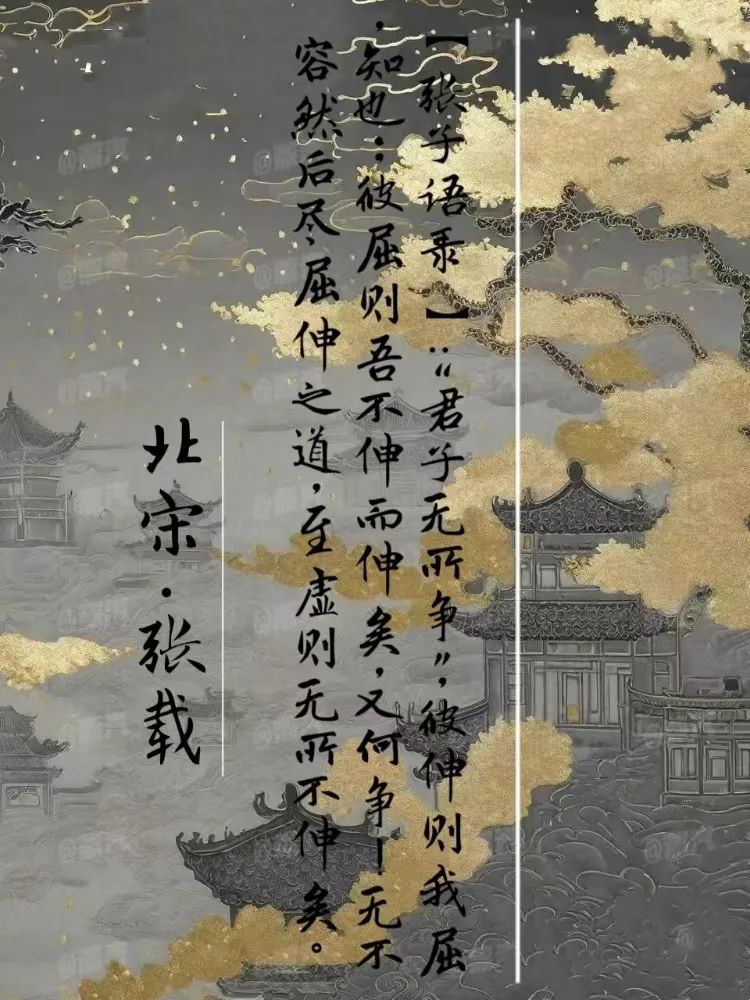 【张子语录】：“君子无所争”，彼伸则我屈
，知也；彼屈则吾不伸而伸矣，又何争！无不
容然后尽屈伸之道，至虚则无所不伸矣。
北宋·张载